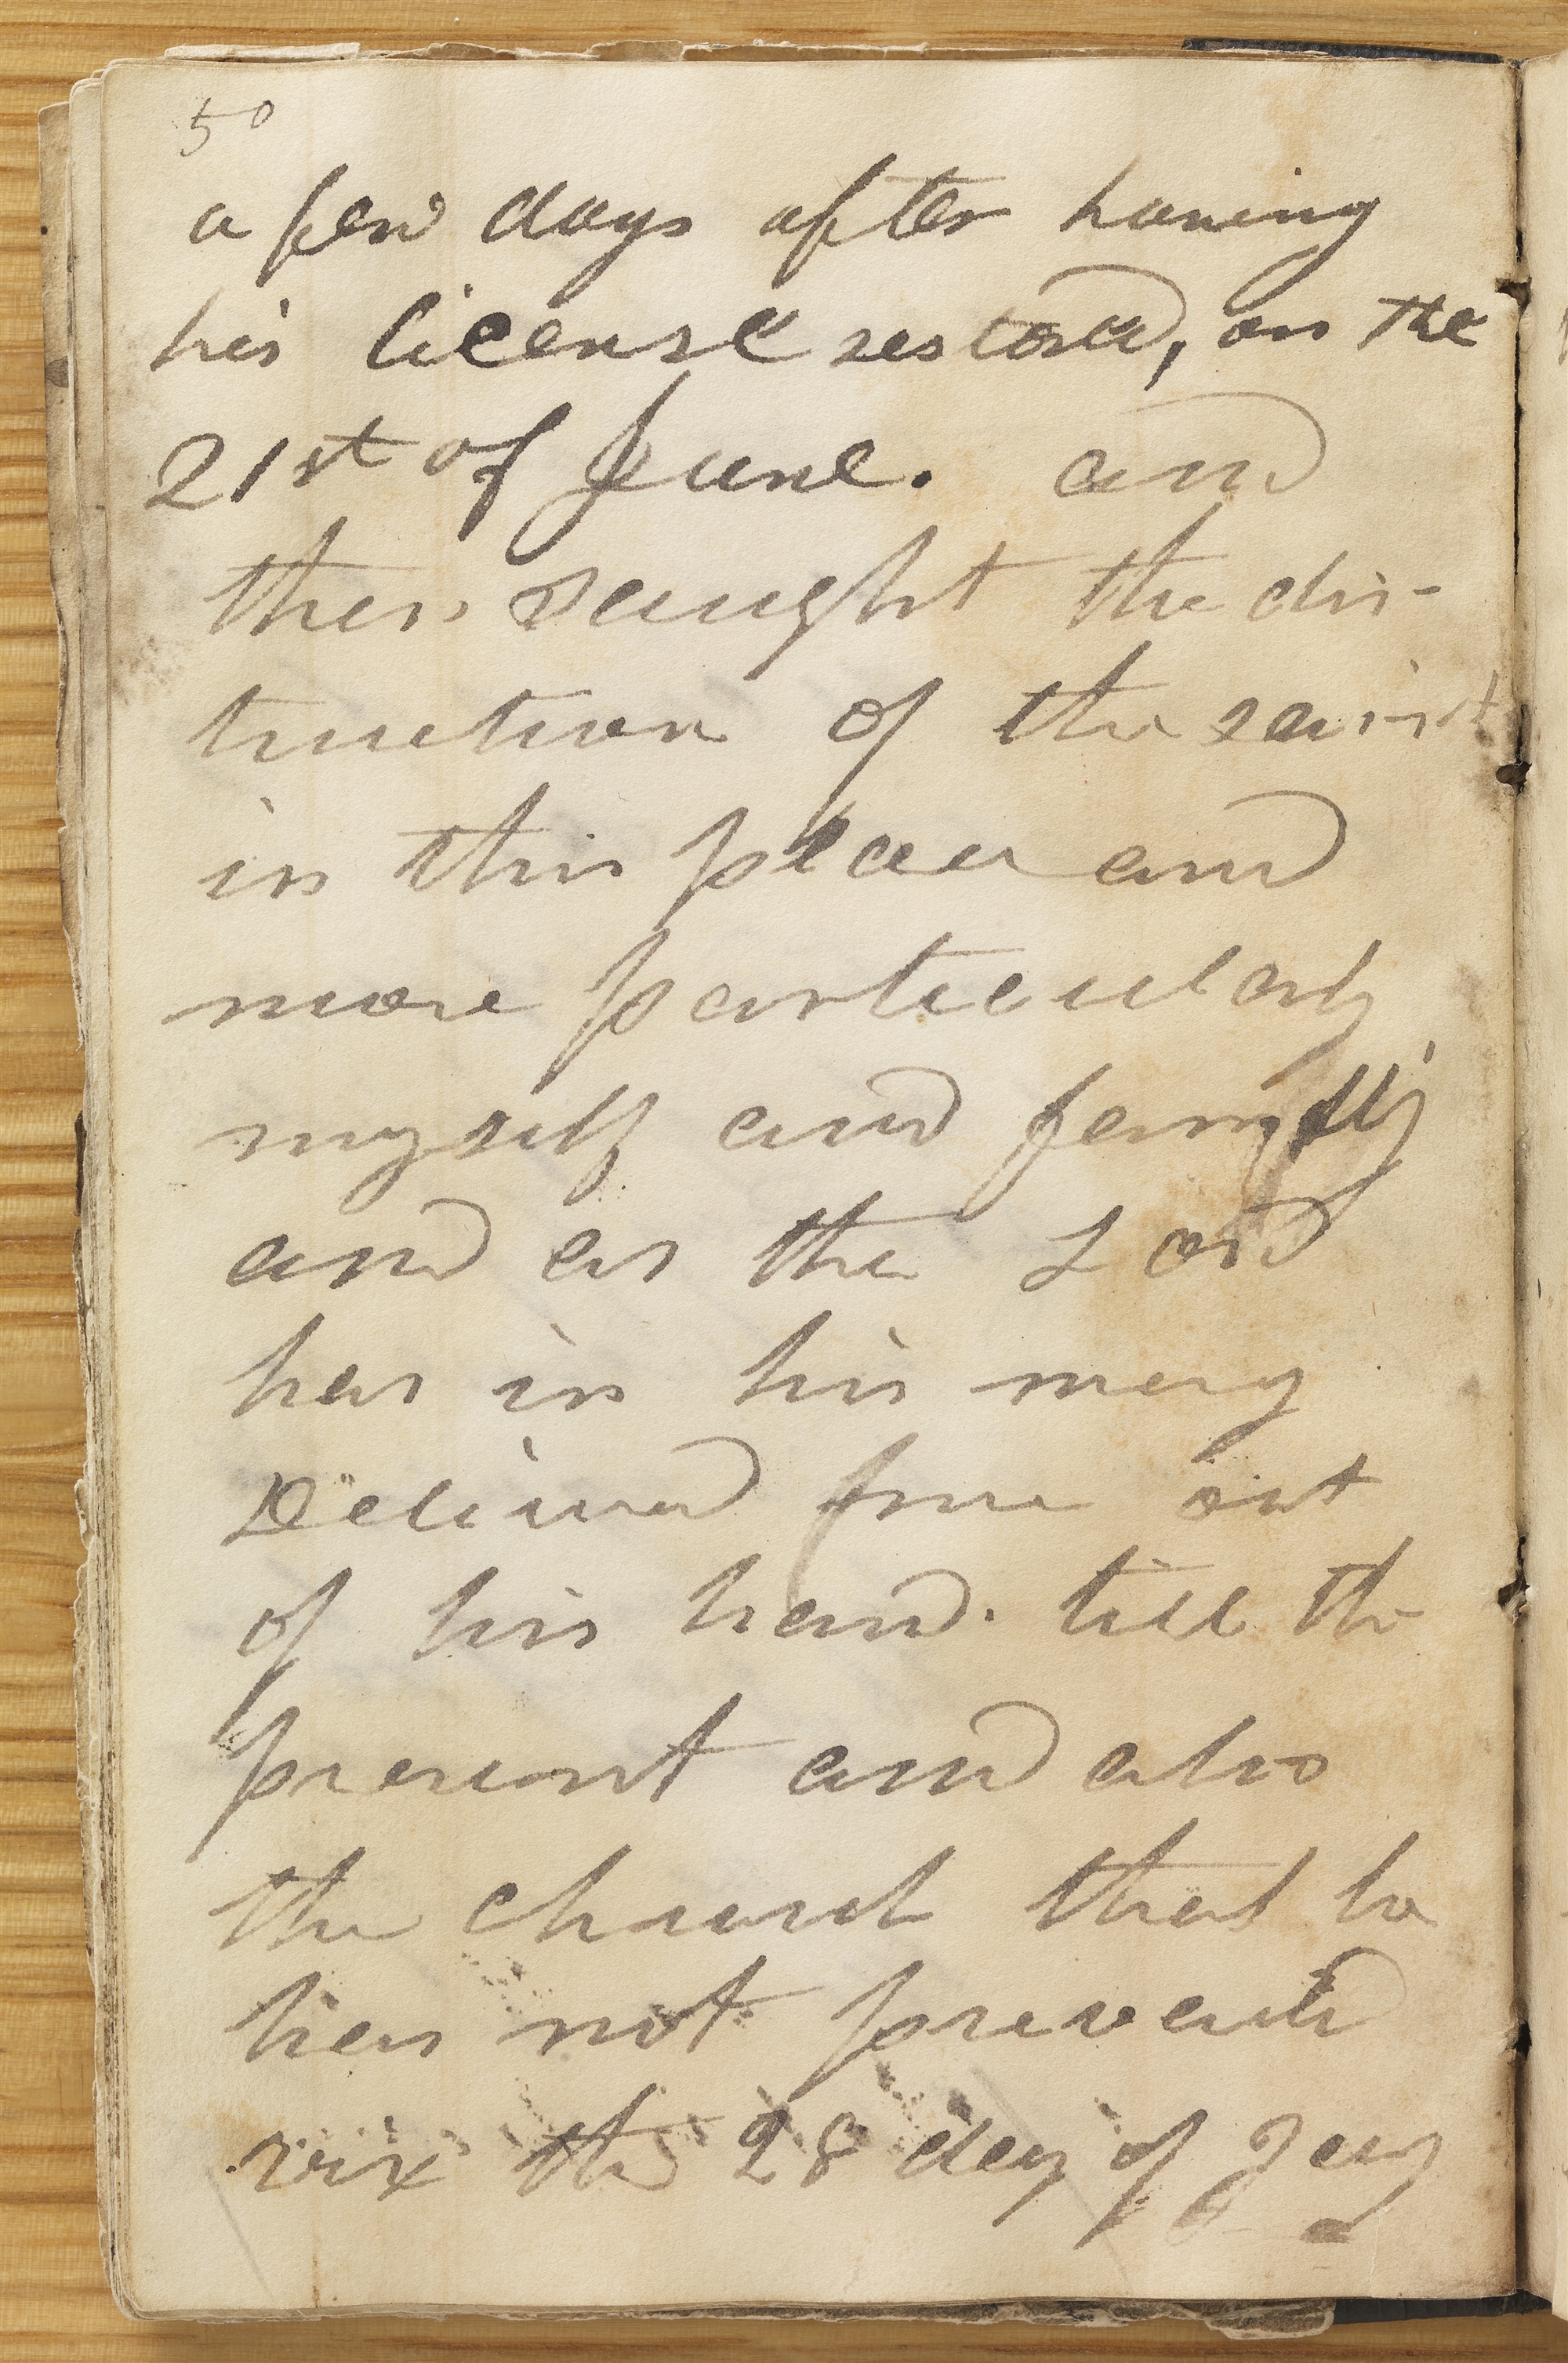 50
a few days after having
his license restored, on the
21st of June. and
then saught the dis-
truction of the saint
in this place and
more particularly
myself and family
and as the Lord
has in his mercy
Delivered me out
of his hand. till the
present and also
the church that he
has not prevailed
viz the 28 day of